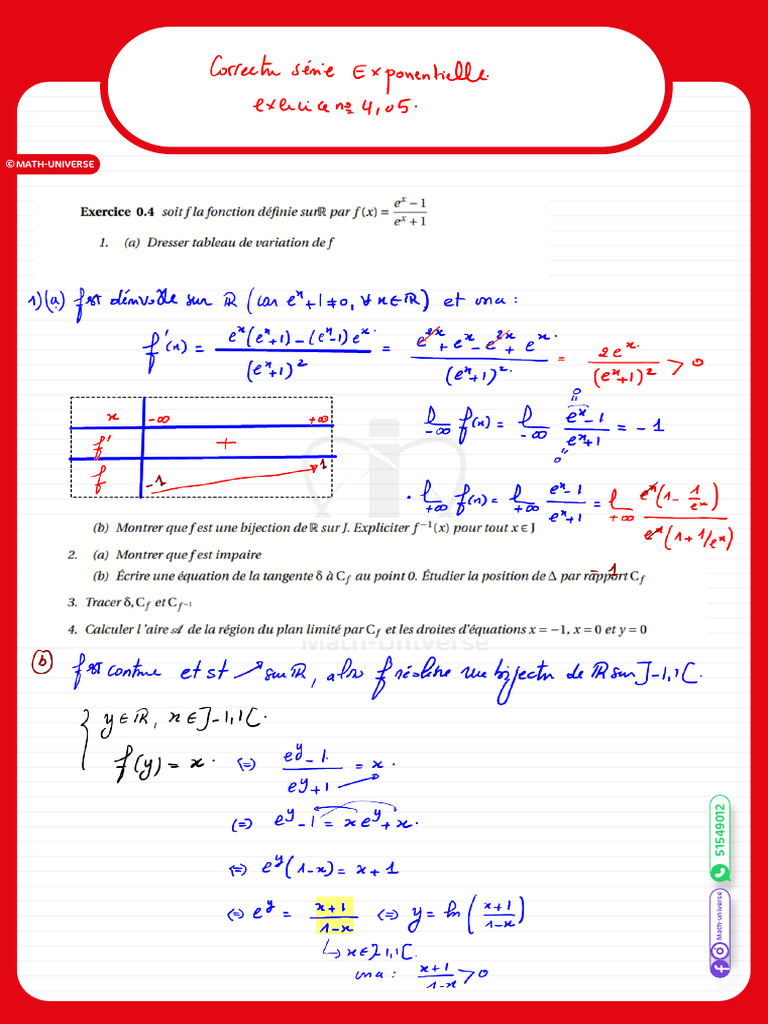 Correctn série Exponentielle.
exercice n° 4,05.
© MATH-UNIVERSE
Exercice 0.4 soit f la fonction définie sur ℝ par f(x) = (e^x − 1)/(e^x + 1)
1. (a) Dresser tableau de variation de f
1)(a) f est dérivable sur ℝ (car e^x+1≠0, ∀x∈ℝ) et on a :
f'(x) = (e^x(e^x+1)-(e^x-1)e^x)/(e^x+1)^2 = (e^2x+e^x-e^2x+e^x)/(e^x+1)^2 = 2e^x/(e^x+1)^2 > 0
x -∞ +∞
f' +
f -1 1
l -∞ f(x) = l -∞ (e^x-1)/(e^x+1) = -1
0
0
• l +∞ f(x) = l +∞ (e^x-1)/(e^x+1) = l +∞ e^x(1-1/e^x)/e^x(1+1/e^x)
= 1
(b) Montrer que f est une bijection de ℝ sur J. Expliciter f⁻¹(x) pour tout x ∈ J
2. (a) Montrer que f est impaire
(b) Écrire une équation de la tangente δ à C_f au point 0. Étudier la position de Δ par rapport C_f
3. Tracer δ, C_f et C_f⁻¹
4. Calculer l'aire 𝒜 de la région du plan limité par C_f et les droites d'équations x = −1, x = 0 et y = 0
Math-Universe
(b) f est continue et st ↗ sur ℝ, alors f réalise une bijectn de ℝ sur ]-1,1[.
{ y∈ℝ, x∈]-1,1[.
f(y) = x. ⇔ (e^y-1)/(e^y+1) = x.
⇔ e^y-1 = xe^y+x.
⇔ e^y(1-x) = x+1
⇔ e^y = (x+1)/(1-x) ⇔ y = ln((x+1)/(1-x))
↳ x∈]-1,1[.
on a : (x+1)/(1-x) > 0
51549012
Math-universe